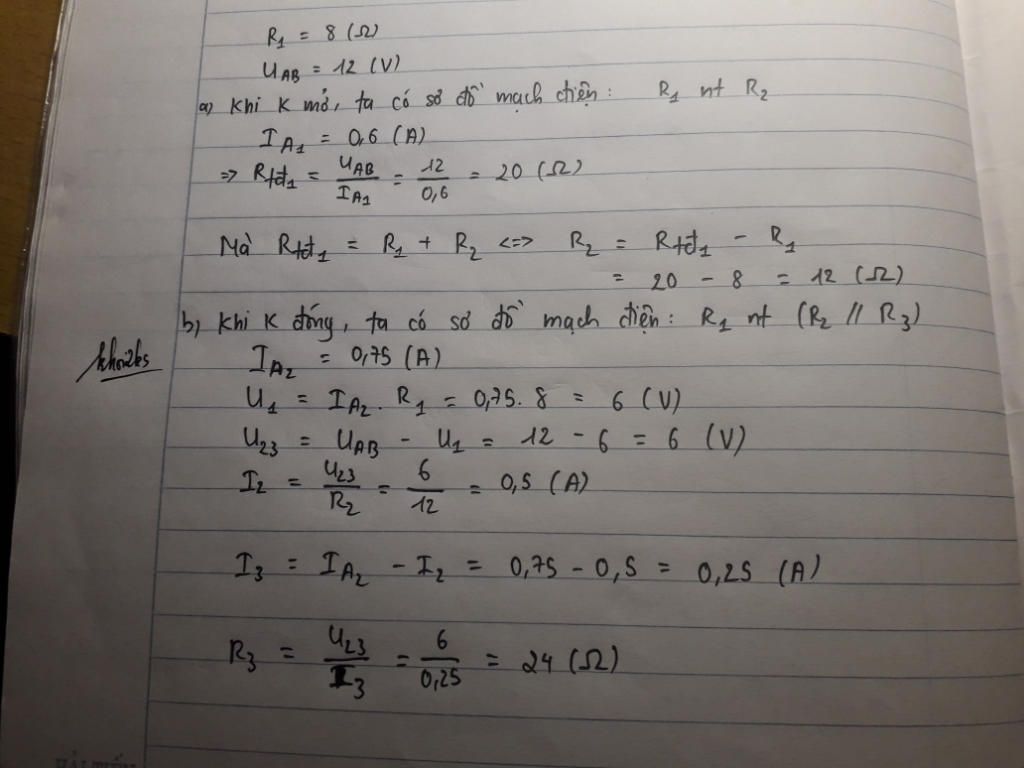 R₁ = 8 (Ω)
U_AB = 12 (V)
a) Khi K mở, ta có sơ đồ mạch điện: R₁ nt R₂
I_A₁ = 0,6 (A)
=> R_tđ₁ = U_AB / I_A₁ = 12 / 0,6 = 20 (Ω)
Mà R_tđ₁ = R₁ + R₂ <=> R₂ = R_tđ₁ - R₁
= 20 - 8 = 12 (Ω)
b) Khi K đóng, ta có sơ đồ mạch điện: R₁ nt (R₂ // R₃)
khoi2k5
I_A₂ = 0,75 (A)
U₁ = I_A₂ . R₁ = 0,75. 8 = 6 (V)
U₂₃ = U_AB - U₁ = 12 - 6 = 6 (V)
I₂ = U₂₃ / R₂ = 6 / 12 = 0,5 (A)
I₃ = I_A₂ - I₂ = 0,75 - 0,5 = 0,25 (A)
R₃ = U₂₃ / I₃ = 6 / 0,25 = 24 (Ω)